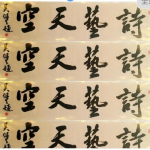 詩藝天空
詩藝天空
詩藝天空
詩藝天空